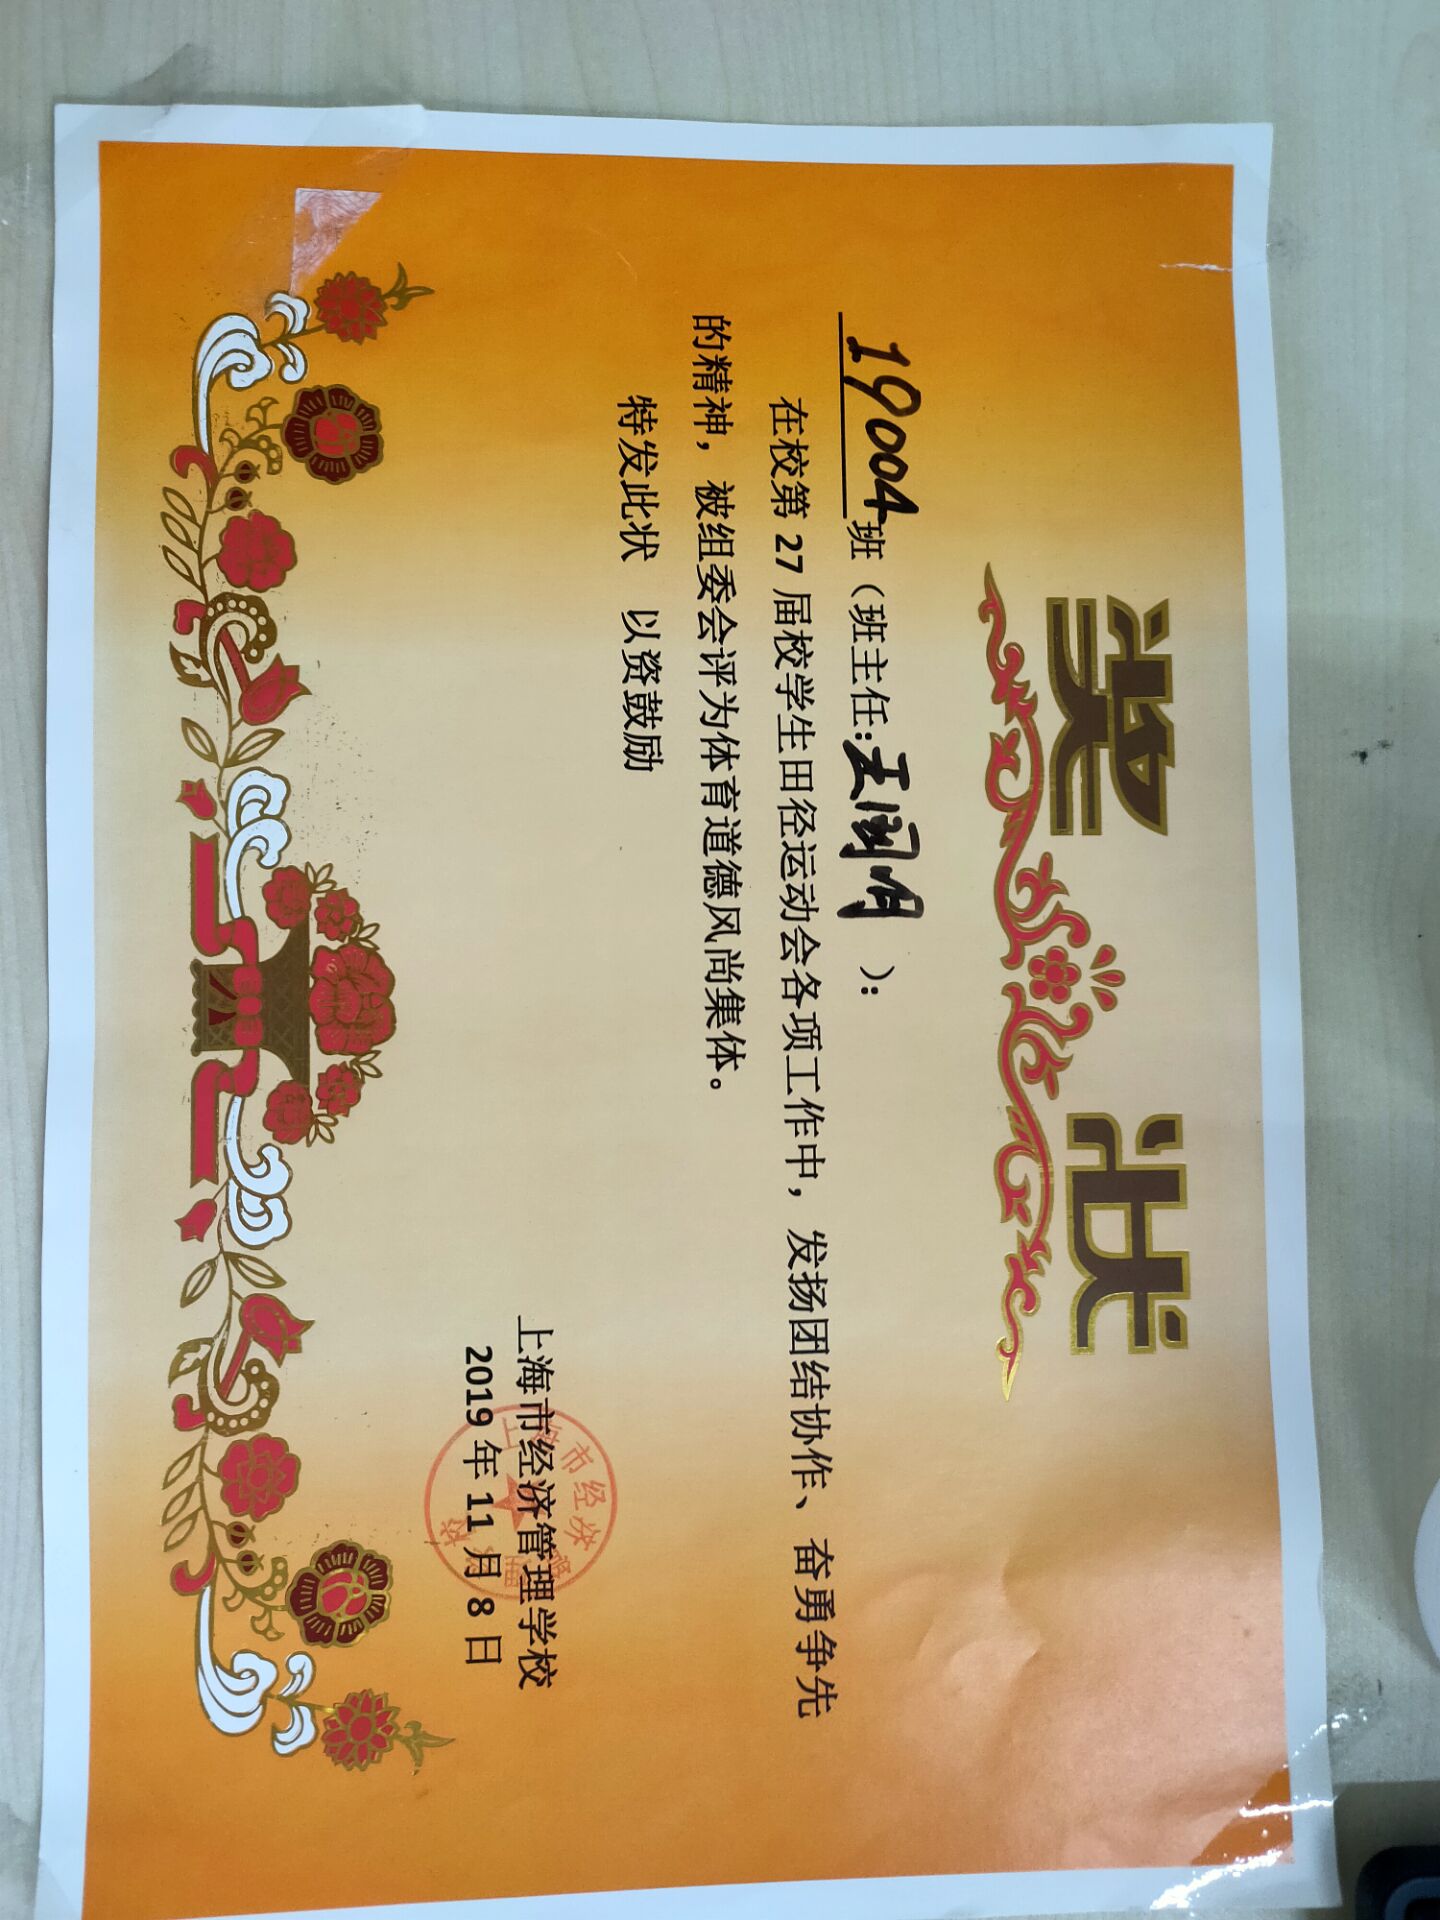 奖状
19004班（班主任：王润明）：
在校第 27 届校学生田径运动会各项工作中，发扬团结协作、奋勇争先
的精神，被组委会评为体育道德风尚集体。
特发此状 以资鼓励
上海市经济管理学校
2019 年 11 月 8 日
上海市经济管理学校